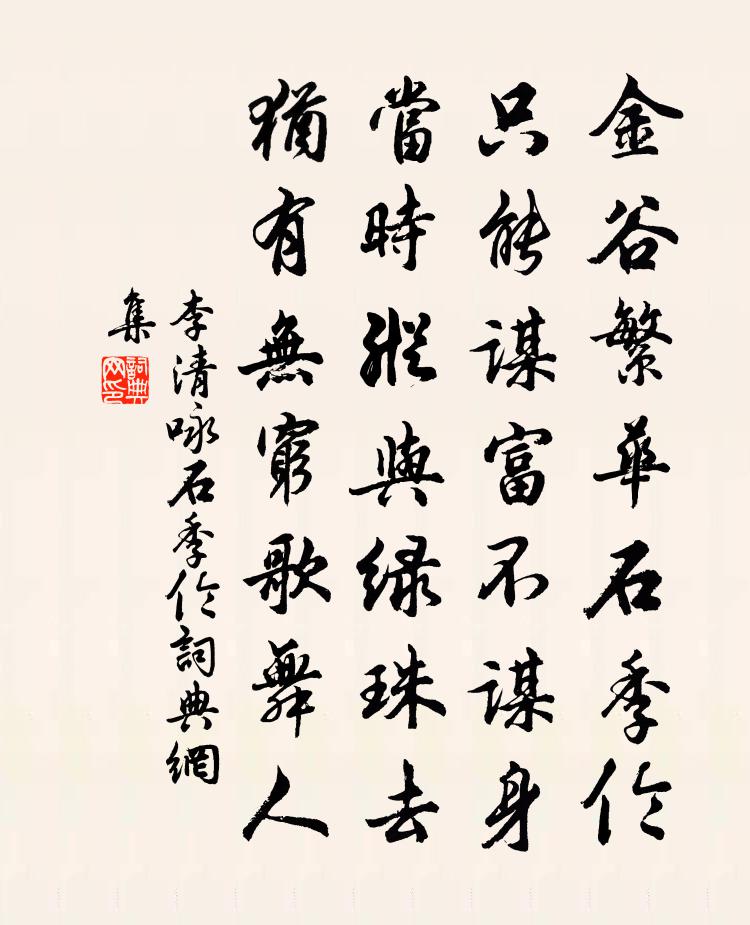 金谷繁華石季伦
只能謀富不謀身
當時縱與緑珠去
猶有無窮歌舞人
李清咏石季伦詞典網
集
詞典
网印